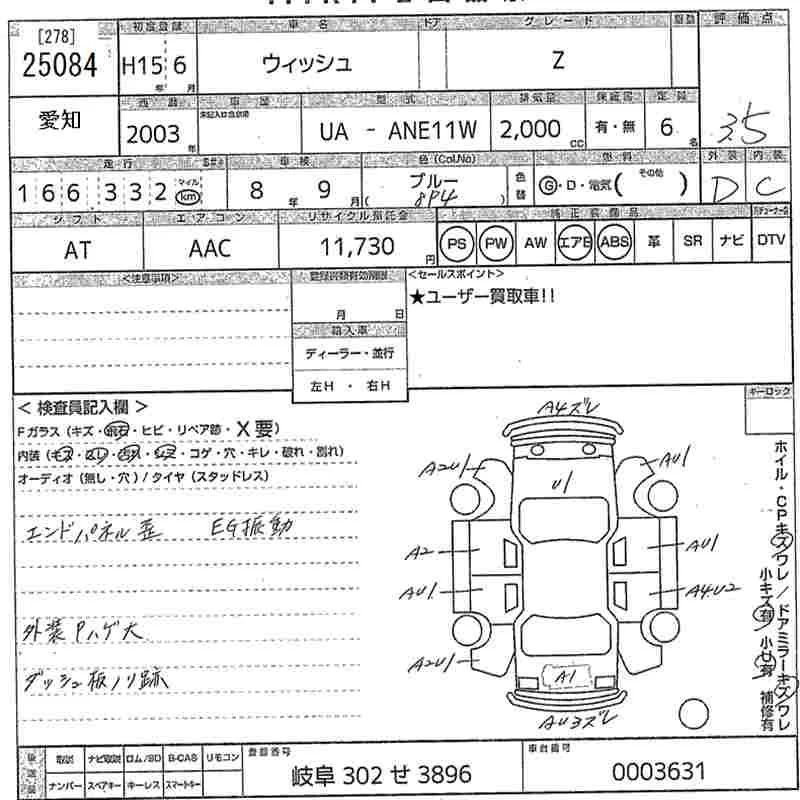 [278]
25084
初度登録
車名
ドア
グレード
駆動
評価点
H15 6
年 月
ウィッシュ
Z
3.5
愛知
西暦
車歴
型式
排気量
保証書
定員
2003
年
UA - ANE11W
2,000
CC
有・無
6
名
走行
車検
色(Col.No)
燃料
外装
内装
166332
マイル
km
8 年 9 月
ブルー
( 8P4 )
色替
G・D・電気( その他 )
D
C
シフト
エアコン
リサイクル預託金
純正装備品
AT
AAC
11,730
円
PS
PW
AW
エアB
ABS
革
SR
ナビ
DTV
<注意事項>
<セールスポイント>
★ユーザー買取車!!
月 日
輸入車
ディーラー・並行
左H ・ 右H
キーロック
< 検査員記入欄 >
Fガラス (キズ・飛石・ヒビ・リペア跡・X要)
内装 (キズ・ヨレ・・シミ・コゲ・穴・キレ・破れ・割れ)
オーディオ (無し・穴) / タイヤ (スタッドレス)
エンドパネル歪 EG振動
外装Pハゲ大
ダッシュ板ノリ跡
A4ズレ
A2U1
AU1
U1
A2
AU1
AU1
A4U2
A2U1
A1
AU3ズレ
ホイル・CPキズワレ/ドアミラーキズ/ワレ
小キズ有 小U有 補修有
後送品
取説
ナビ取説
ロム/SD
B-CAS
リモコン
ナンバー
スペアキー
キーレス
スマートキー
登録番号
岐阜 302 せ 3896
車台番号
0003631